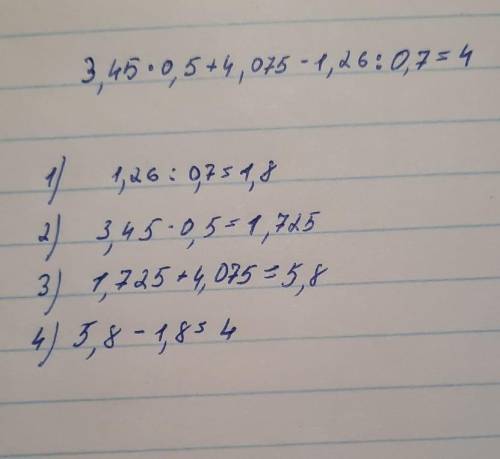 3,45·0,5+4,075-1,26:0,7=4
1) 1,26:0,7=1,8
2) 3,45·0,5=1,725
3) 1,725+4,075=5,8
4) 5,8-1,8=4